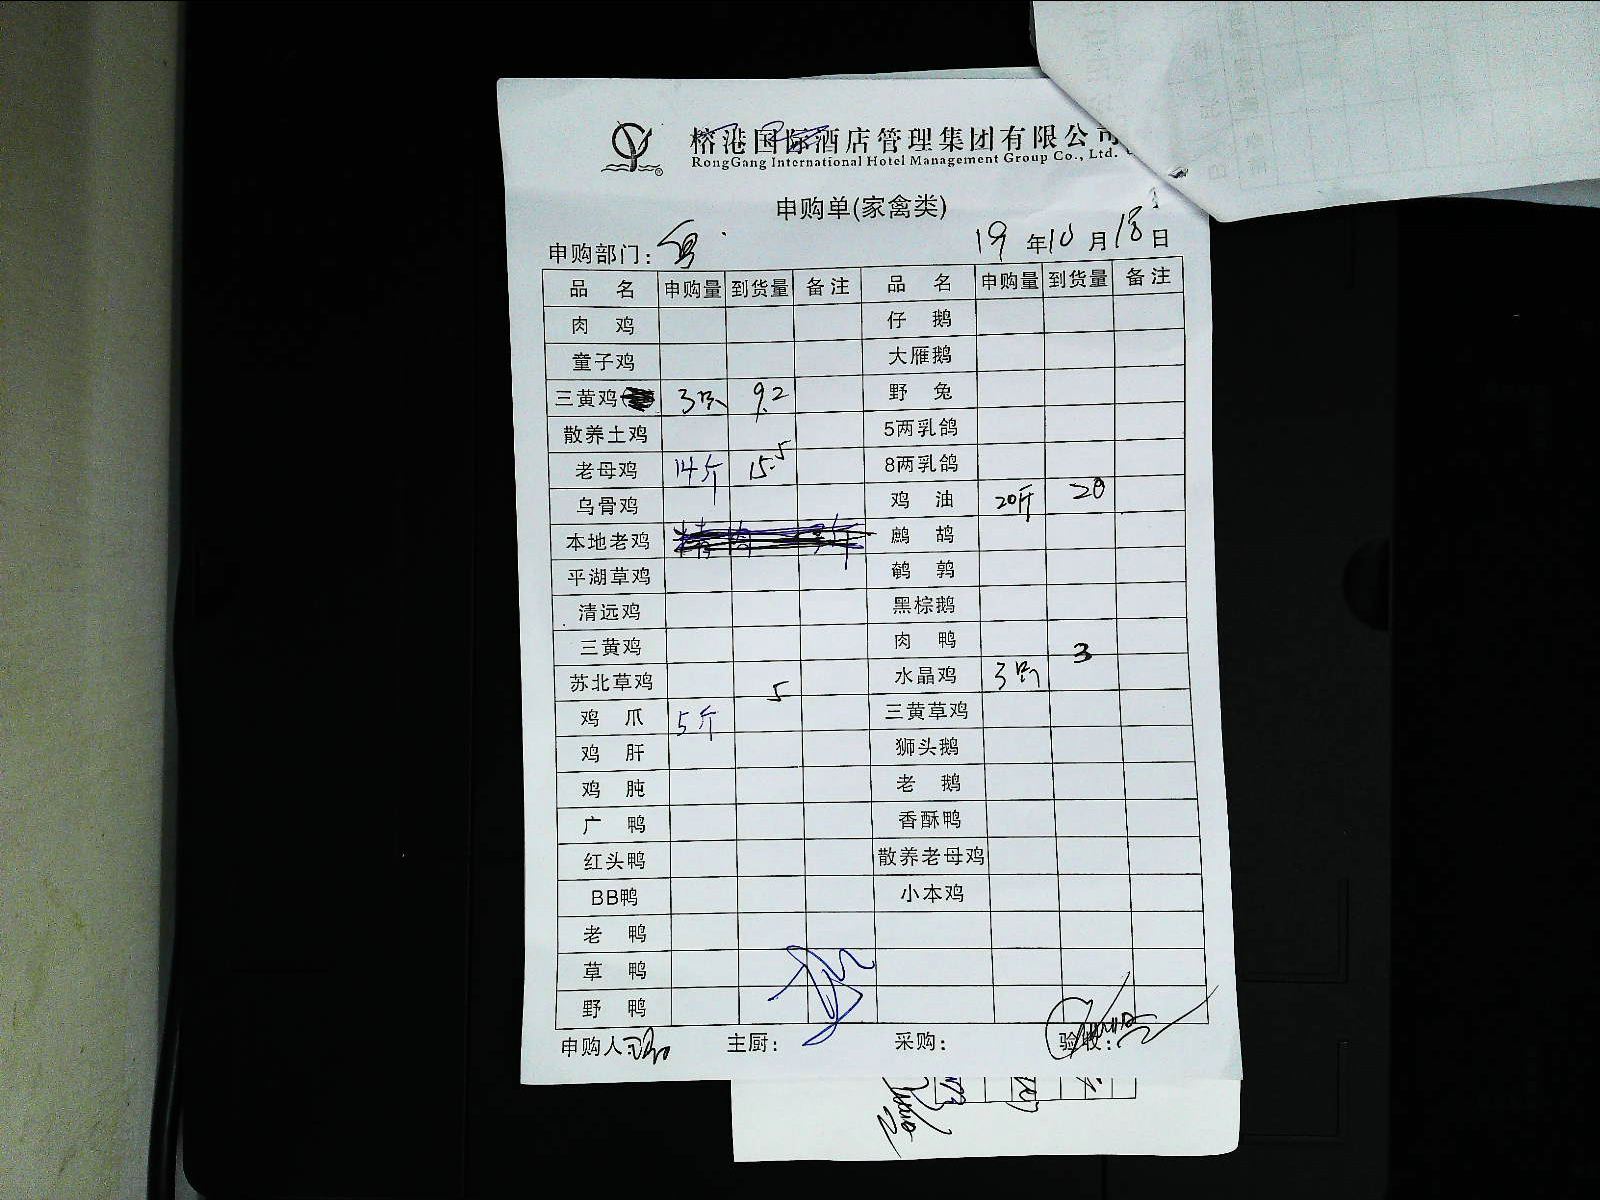 榕港国际酒店管理集团有限公司
RongGang International Hotel Management Group Co., Ltd.
申购单(家禽类)
申购部门： 19年10月18日
品名 申购量 到货量 备注 品名 申购量 到货量 备注
肉鸡 仔鹅
童子鸡 大雁鹅
三黄鸡 3只 9.2 野兔
散养土鸡 5两乳鸽
老母鸡 14斤 15.5 8两乳鸽
乌骨鸡 鸡油 20斤 20
本地老鸡 鹧鸪
平湖草鸡 鹌鹑
清远鸡 黑棕鹅
三黄鸡 肉鸭
苏北草鸡 水晶鸡 3只 3
鸡爪 5斤 5 三黄草鸡
鸡肝 狮头鹅
鸡肫 老鹅
广鸭 香酥鸭
红头鸭 散养老母鸡
BB鸭 小本鸡
老鸭
草鸭
野鸭
申购人 主厨： 采购： 验收：